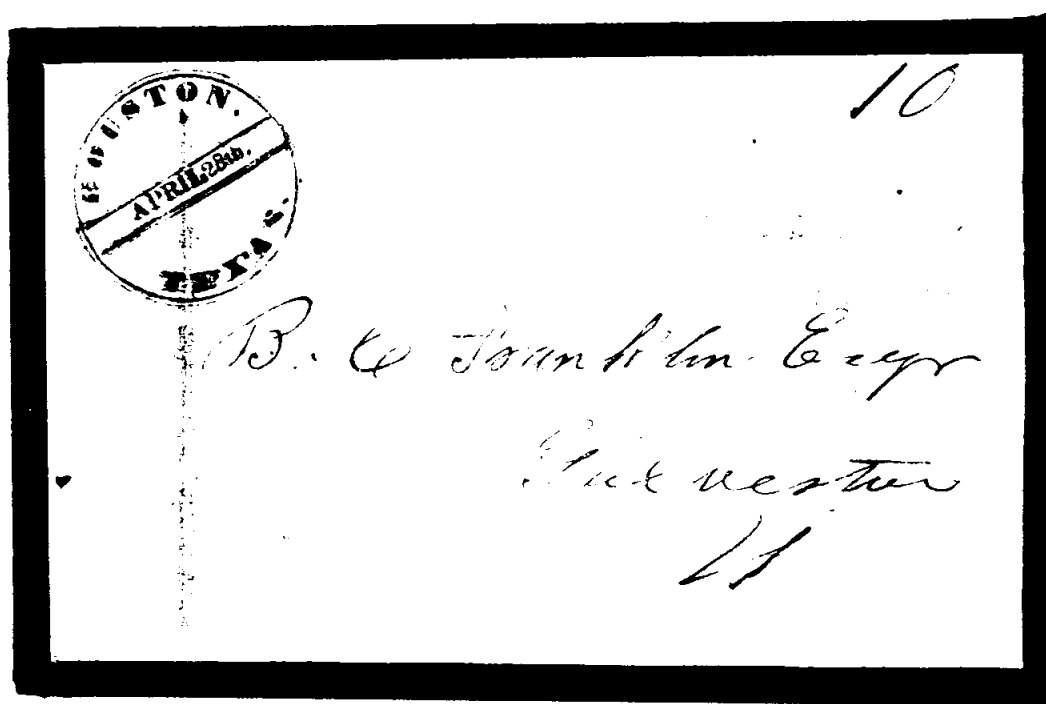 HOUSTON.
APRIL 28th.
TEXAS.
10
B. C Franklin Esqr
Galveston